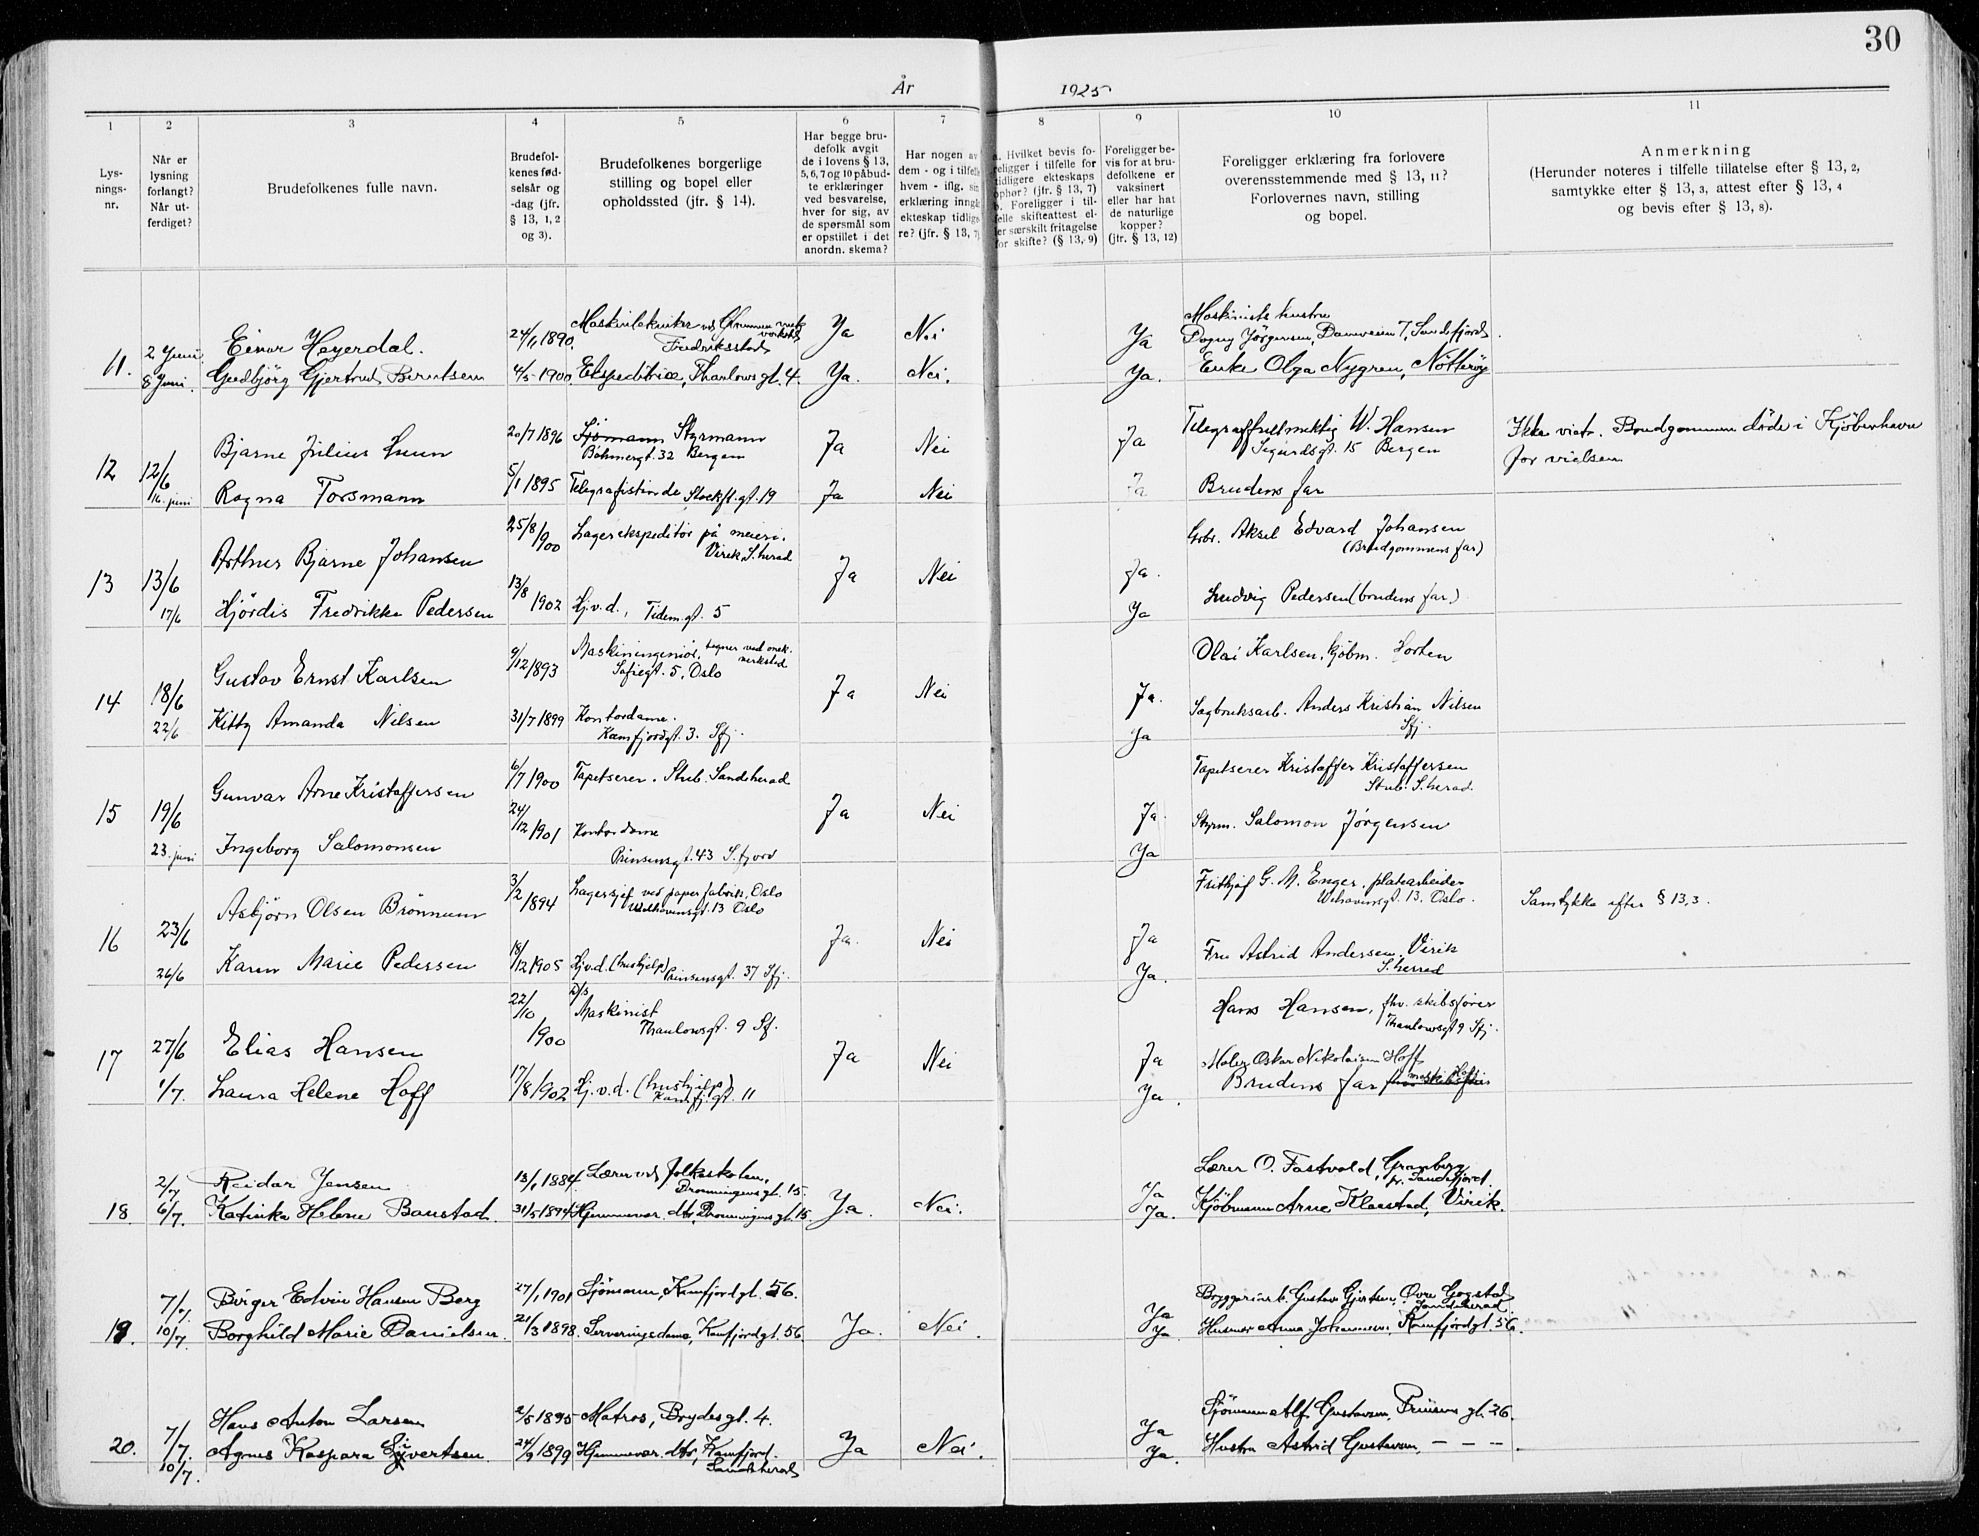 30
År 1925
1 2 3 4 5 6 7 8 9 10 11
Lys-
nings-
nr.
Når er
lysning
forlangt?
Når ut-
ferdiget?
Brudefolkenes fulle navn.
Brudefol-
kenes fød-
selsår og
-dag (jfr.
§ 13, 1, 2
og 3).
Brudefolkenes borgerlige
stilling og bopel eller
opholdssted (jfr. § 14).
Har begge bru-
defolk avgit
de i lovens § 13,
5, 6, 7 og 10 påbud-
te erklæringer
ved besvarelse,
hver for sig, av
de spørsmål som
er opstillet i det
anordn. skema?
Har nogen av
dem - og i tilfelle
hvem - iflg. sin
erklæring inngå
ekteskap tidlige
re? (jfr. § 13, 7)
a. Hvilket bevis fo-
religger i tilfelle for
tidligere ekteskaps
ophør? (jfr. § 13, 7)
b. Foreligger i til-
felle skifteattest el-
ler særskilt fritagelse
for skifte? (§ 13, 9)
Foreligger be-
vis for at bru-
defolkene er
vaksinert
eller har hat
de naturlige
kopper?
(jfr. § 13, 12)
Foreligger erklæring fra forlovere
overensstemmende med § 13, 11?
Forlovernes navn, stilling
og bopel.
Anmerkning
(Herunder noteres i tilfelle tillatelse efter § 13, 2,
samtykke efter § 13, 3, attest efter § 13, 4
og bevis efter § 13, 8).
11. 2 Juni Einar Heyerdal. 24/1 1890. Maskintekniker ved Glommen mek. verksted Fredriksstad Ya Nei Ya Maskinists hustru Dagny Jörgensen, Damveien 7, Sandefjord
8 Juni Gudbjörg Gjertrud Berntsen 4/5 1900 Ekspeditrice, Thaulows gt. 4. Ya. Nei. Ya. Enke Olga Nygren, Nötteröy
12 12/6 Bjarne Julius Lunn 20/7 1896 Sjömann Styrmann Böhmergt. 32 Bergen Ja Nei Ja Telegraffullmektig W. Hansen Sigurdsgt. 15 Bergen Ikke viet. Brudgommen döde i Kjöbenhavn
for vielsen
16. juni Ragna Torsmann 5/1 1895 Telegrafistinde Stockfl.gt. 19 Ja Nei Ja Brudens far
13 13/6 Arthur Bjarne Johansen 25/8 1900 Lagerekspeditör på meieri. Virik S.herad Ja Nei Ja. Grbr. Aksel Edvard Johansen (Brudgommens far)
17/6 Hjördis Fredrikke Pedersen 13/8 1902 Hj.v.d., Tidem.gt. 5 Ya Ludvig Pedersen (brudens far)
14 18/6 Gustav Ernst Karlsen 9/12 1893 Maskiningeniör, tegner ved mek. verksted Sofiegt. 5, Oslo Ja Nei Ja. Olai Karlsen, kjöbm. Horten
22/6 Kitty Amanda Nilsen 31/7 1899 Kontordame. Kamfjordgt. 3. Sfj. Ja Sagbruksarb. Anders Kristian Nilsen Sfj.
15 19/6 Gunvar Arne Kristoffersen 6/7 1900 Tapetserer. Stub. Sandeherad Ja Nei Ja. Tapetserer Kristoffer Kristoffersen Stub. S.herad.
23. juni Ingeborg Salomonsen 24/12 1901 Kontordame Prinsensgt. 43 S.fjord Ya Styrm. Salomon Jörgensen
16 23/6 Asbjörn Olsen Brönnum 3/2 1894 Lagersjef ved papirfabrik, Oslo Welhavensgt. 13 Oslo Ja. Nei Ja Frithjof G. M. Enger. platearbeider Welhavensgt. 13. Oslo. Samtykke efter § 13,3.
26/6 Karen Marie Pedersen 18/12 1905 Hj.v.d. (hushjelp) Prinsensgt. 37 Sfj. Ya. Fru Astrid Andersen, Virik S.herred
17 27/6 Elias Hansen 22/10 1900 D/s Maskinist Thaulowsgt. 9 Sf. Ja Nei Ja Hans Hansen, fhv. skibsförer Thaulowsgt 9 Sfj.
1/7. Laura Helene Hoff 17/8 1902 Hj.v.d. (hushjelp) Kamfj.gt. 11 Ya. Maler Oskar Nikolaisen Hoff
Brudens far
18. 2/7 Reidar Jensen 13/1 1884 Lærer ved folkeskolen, Dronningens gt. 15. Ya. Nei. Ja Lærer O. Fastvold, Granberg pr. Sandefjord.
6/7. Katinka Helene Baustad. 31/5 1894 Hjemmevær. dtr, Dronningens gt. 15. Ja. Kjöbmann Arne Klaastad, Virik.
19. 7/7. Birger Edvin Hansen Berg 27/1 1901 Sjömann, Kamfjordgt. 56. Ja. Nei. Ja Bryggeriarb. Gustav Gjertsen, Övre Gogstad Sandeherad.
10/7. Borghild Marie Danielsen. 21/3 1898. Serveringsdame, Kamfjordgt. 56 Ja. Husmor Anna Johannesen, Kamfjordgt. 56.
20. 7/7. Hans Anton Larsen 2/5 1895 Matros, Brydes gt. 4. Ja Nei. Ja Sjömann Alf Gustavsen, Prinsens gt. 26.
10/7. Agnes Kaspara Syvertsen. 24/9 1899 Hjemmevær. dtr, Kamfjord Sandeherad Ja. Hustru Astrid Gustavsen, – – – .